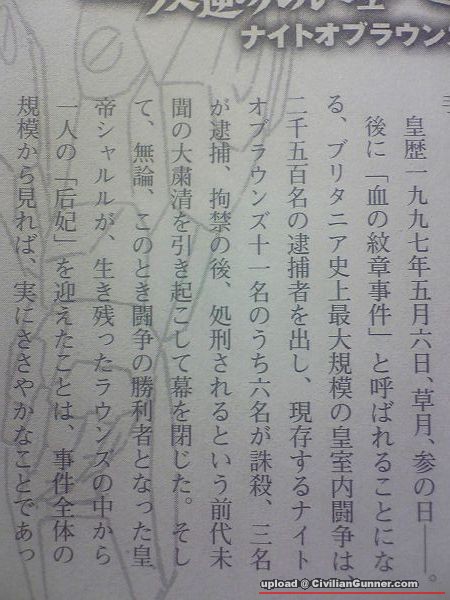 ナイトオブラウンズ
皇歴一九九七年五月六日、草月、参の日――。
後に「血の紋章事件」と呼ばれることにな
る、ブリタニア史上最大規模の皇室内闘争は、
二千五百名の逮捕者を出し、現存するナイト
オブラウンズ十一名のうち六名が誅殺、三名
が逮捕、拘禁の後、処刑されるという前代未
聞の大粛清を引き起こして幕を閉じた。そし
て、無論、このとき闘争の勝利者となった皇
帝シャルルが、生き残ったラウンズの中から
一人の「后妃」を迎えたことは、事件全体の
規模から見れば、実にささやかなことであっ
upload @ CivilianGunner.com